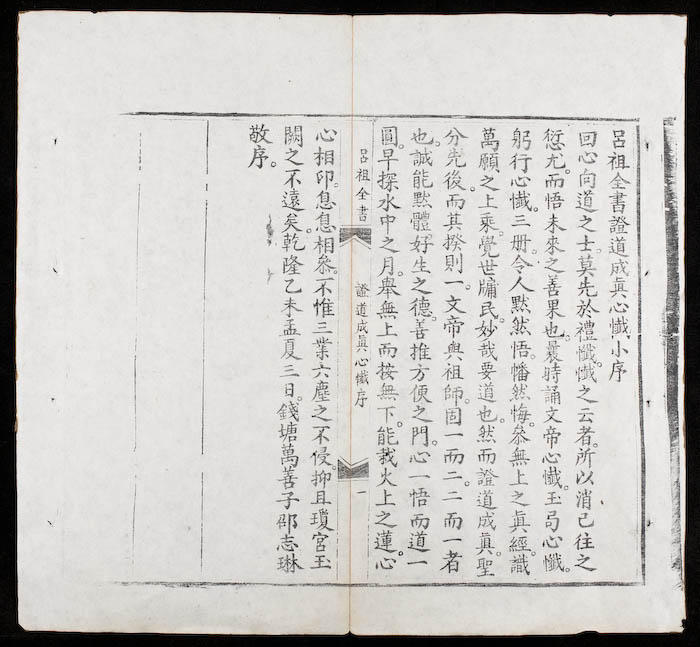 呂祖全書證道成眞心懺小序
回心向道之士。莫先於禮懺。懺之云者。所以消已往之
愆尤。而悟未來之善果也。曩時誦文帝心懺。玉局心懺。
躬行心懺。三册。令人黙然悟。幡然悔。叅無上之眞經。識
萬願之上乘。覺世牖民。妙哉要道也。然而證道成眞。聖
分先後。而其揆則一。文帝與祖師。固一而二。二而一者
也。誠能黙體好生之德。善推方便之門。心一悟而道一
圓。早探水中之月。舉無上而按無下。能栽火上之蓮。心
呂祖全書
證道成眞心懺序
一
心相印。息息相叅。不惟三業六塵之不侵。抑且瓊宮玉
闕之不遠矣。乾隆乙未孟夏三日。錢塘萬善子邵志琳
敬序。